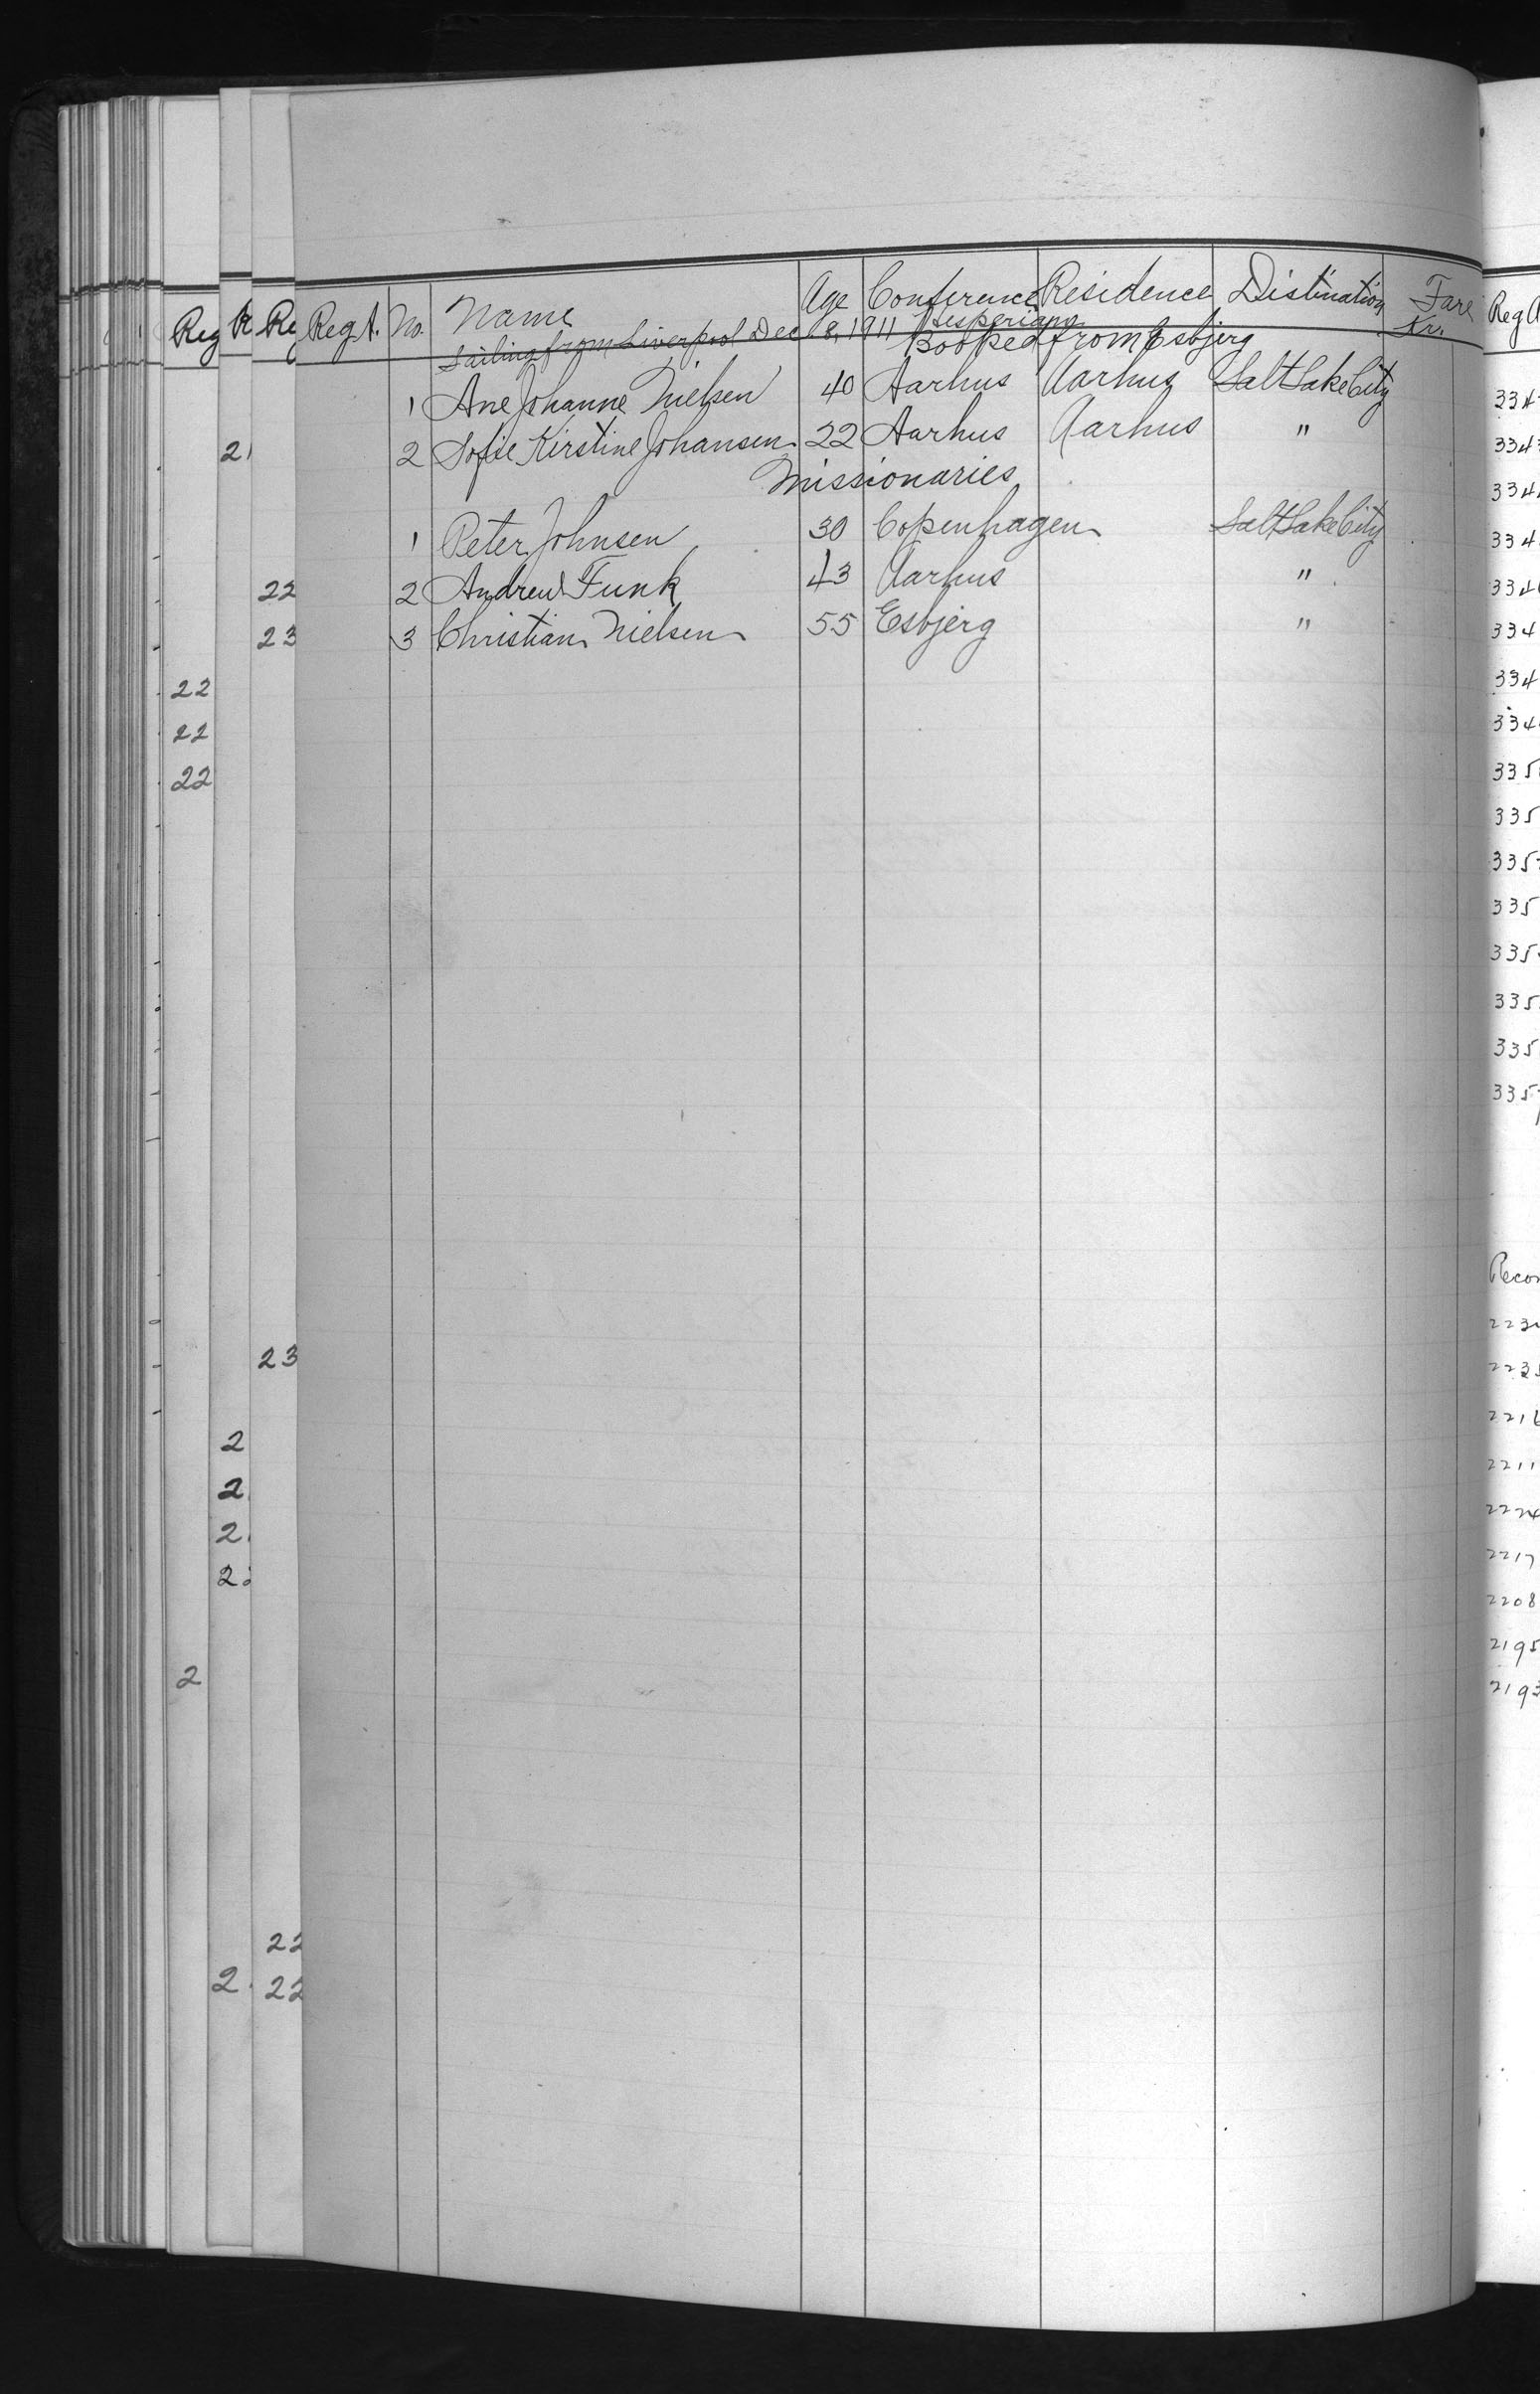 Reg A. No. Name Age Conference Residence Distination Fare Kr.
Sailing from Liverpool Dec. 8, 1911 Hesperian
Booked from Esbjerg
1 Ane Johanne Nielsen 40 Aarhus Aarhus Salt Lake City
2 Sofie Kirstine Johansen 22 Aarhus Aarhus "
Missionaries
1 Peter Johnsen 30 Copenhagen Salt Lake City
2 Andrew Funk 43 Aarhus "
3 Christian Nielsen 55 Esbjerg "
Reg
R
Re
21
22
23
22
22
22
23
2
2
2
2
2
22
2
22
Reg A
334
334
334
334
334
334
334
334
335
335
335
335
335
335
335
335
Recor
223
223
221
2211
222
2217
2208
2195
219